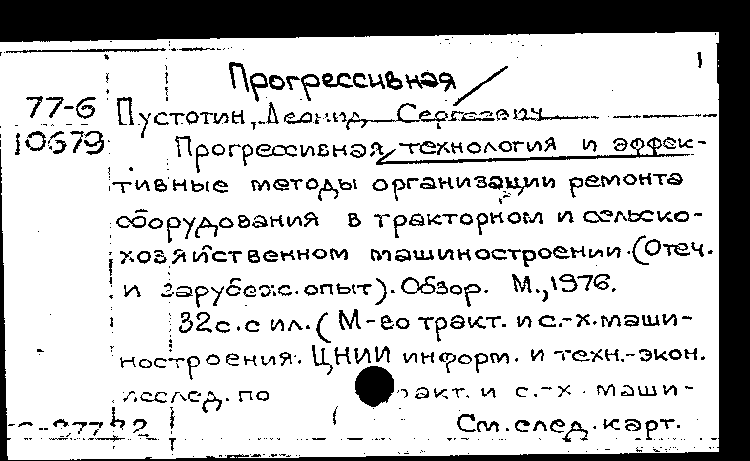 1
Прогрессивная
77-6 Пустотин, Леонид Сергеевич
10679 Прогрессивная технология и эффек-
тивные методы организации ремонта
оборудования в тракторном и сельско-
хозяйственном машиностроении. (Отеч.
и зарубеж. опыт). Обзор. М., 1976.
32с. с ил. (М-во тракт. и с.-х. маши-
ностроения. ЦНИИ информ. и техн.-экон.
исслед. по тракт. и с.-х. маши-
См. след. карт.